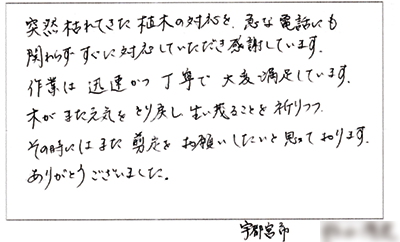 突然枯れてきた植木の対応を、急な電話にも
関わらずすぐに対応していただき感謝しています。
作業は迅速かつ丁寧で大変満足しています。
木がまた元気をとり戻し生い茂ることを祈りつつ
その時にはまた剪定をお願いしたいと思っております。
ありがとうございました。
宇都宮市